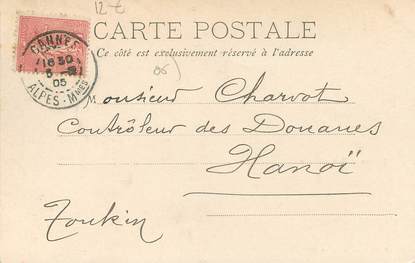 12 €
CARTE POSTALE
Ce côté est exclusivement réservé à l'adresse
CANNES
16 30
05
ALPES-Mmes
06)
Monsieur Charvot
Contrôleur des Douanes
Hanoï
Tonkin